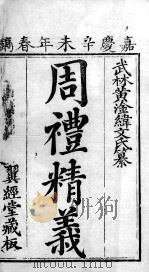 嘉慶辛未年春鐫
武林黃淦緯文氏纂
周禮精義
翼經堂藏板